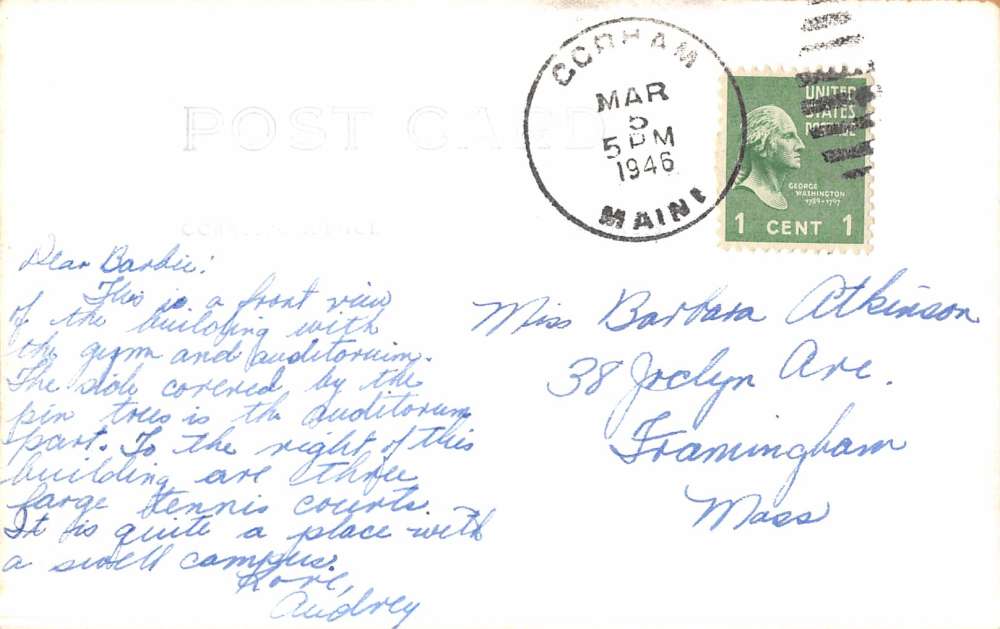 GORHAM
MAR
5
5 PM
1946
MAINE
UNITED
STATES
POSTAGE
GEORGE
WASHINGTON
1789-1797
1 CENT 1
POST CARD
CORRESPONDENCE
Dear Barbie:
This is a front view
of the building with
the gym and auditorium.
The side covered by the
pin trees is the auditorum
part. To the right of this
building are three
large tennis courts.
It is quite a place with
a swell campus.
Love,
Audrey
Miss Barbara Atkinson
38 Joclyn Ave.
Framingham
Mass